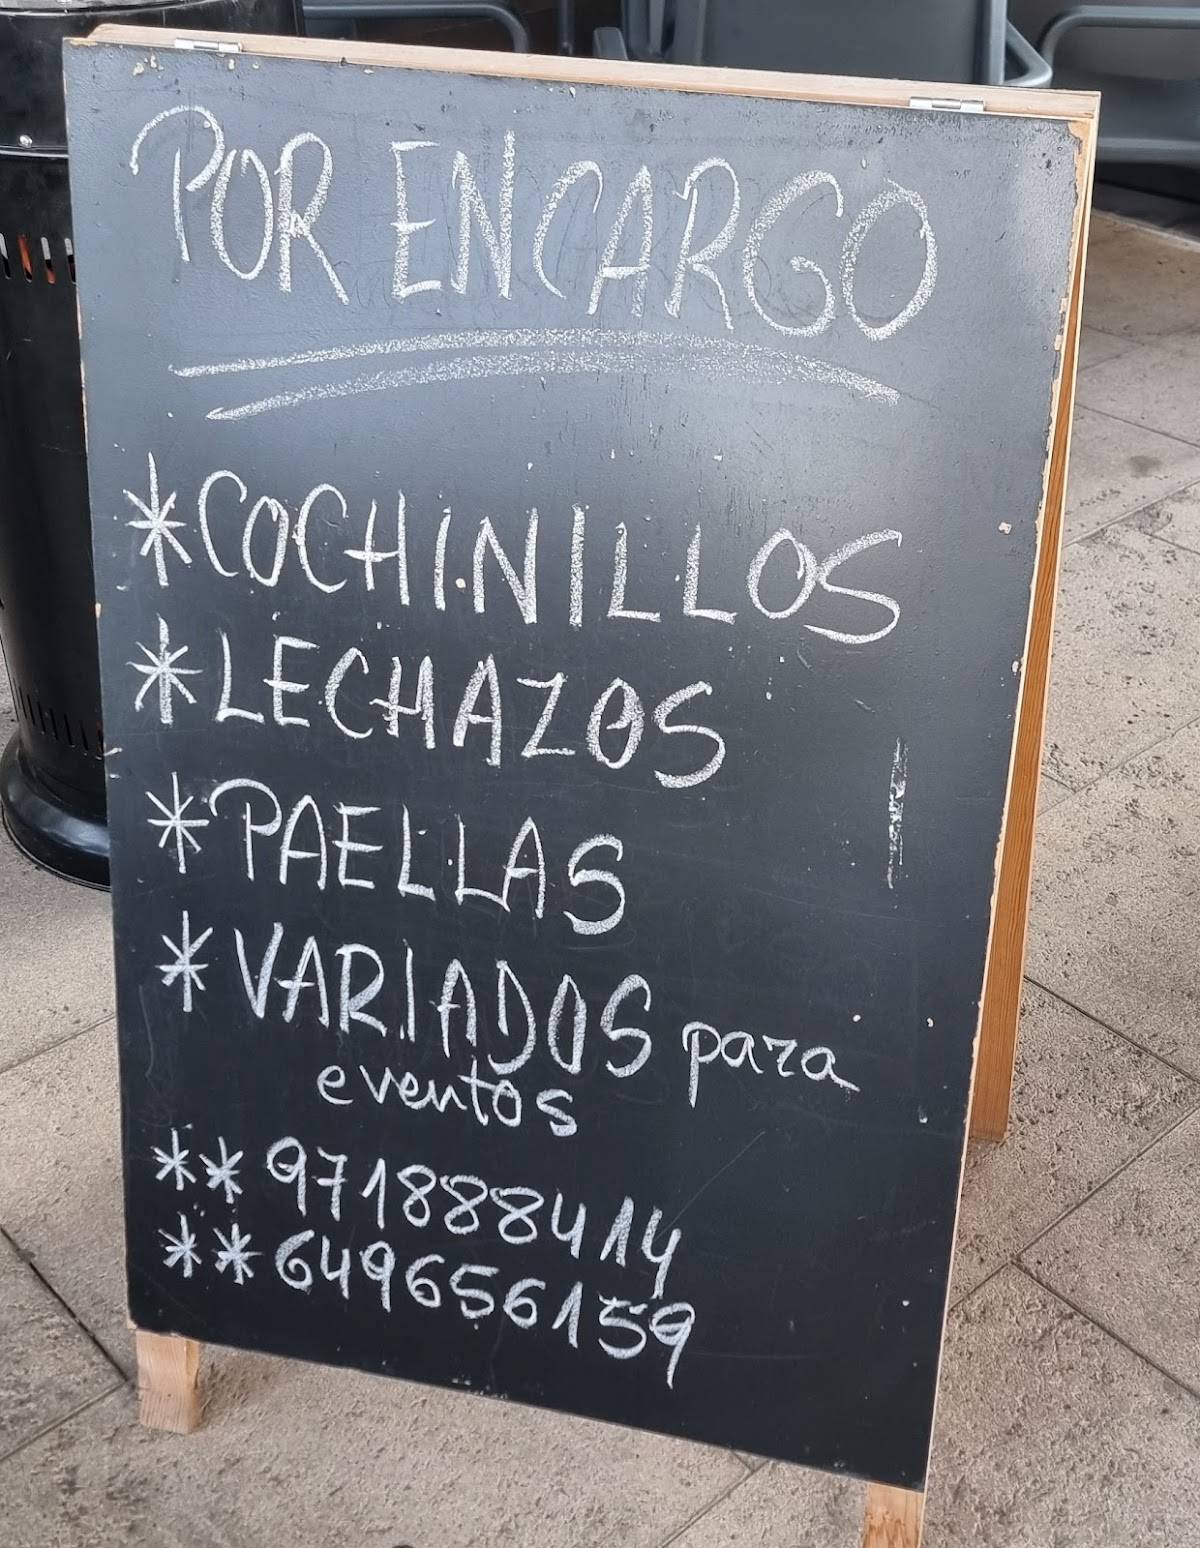 POR ENCARGO
*COCHINILLOS
*LECHAZOS
*PAELLAS
*VARIADOS para
eventos
** 971888414
** 649656159